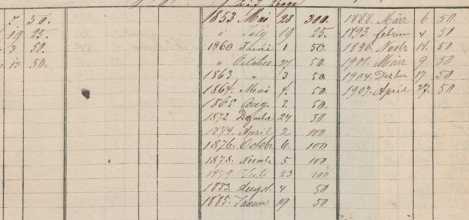 5. 50.
19 25.
3 50.
11 50.
1853 Mai 28 300.
" July 19 25.
1860 Juni 1 50.
" October 31 50.
1863 " 3 50.
1864 Mai 7. 50.
1865 Aug. 3. 50.
1872 2. 50.
1874 April 2 100
1876 Octobr 6 100
1878 5 100
23 100
1883 Augst 4 50
1885 19 50
1888. März 6 50
1893. febru 4 50
1896. Novbr 11. 50
1901. März 9 30
1904. 17 50
1907. April 27. 50